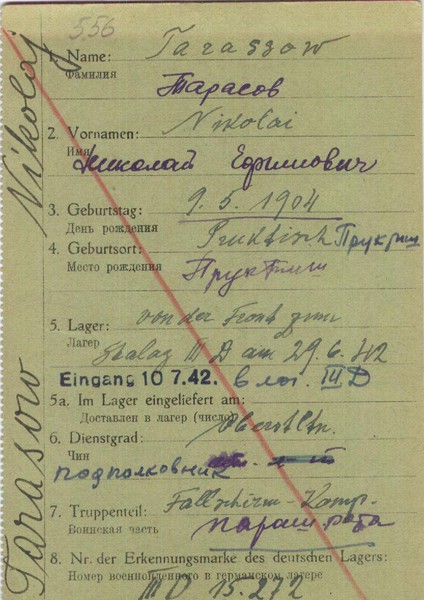 556
1. Name: Tarassow
Фамилия
Тарасов
2. Vornamen: Nikolai
Имя
Николай Ефимович
3. Geburtstag: 9. 5. 1904
День рождения
4. Geburtsort: Pruktisch
Место рождения
5. Lager: von der Front zum
Лагер
Stalag III D am 29.6.42
Eingang 10 7.42. в лаг. III D
5a. Im Lager eingeliefert am:
Доставлен в лагер (число)
6. Dienstgrad: Oberstltn.
Чин
подполковник
7. Truppenteil: Fallschirm-Komp.
Воинская часть
параш. рота
8. Nr. der Erkennungsmarke des deutschen Lagers:
Номер военнопленного в германском лагере
III D 15.272
Tarassow Nikolaj